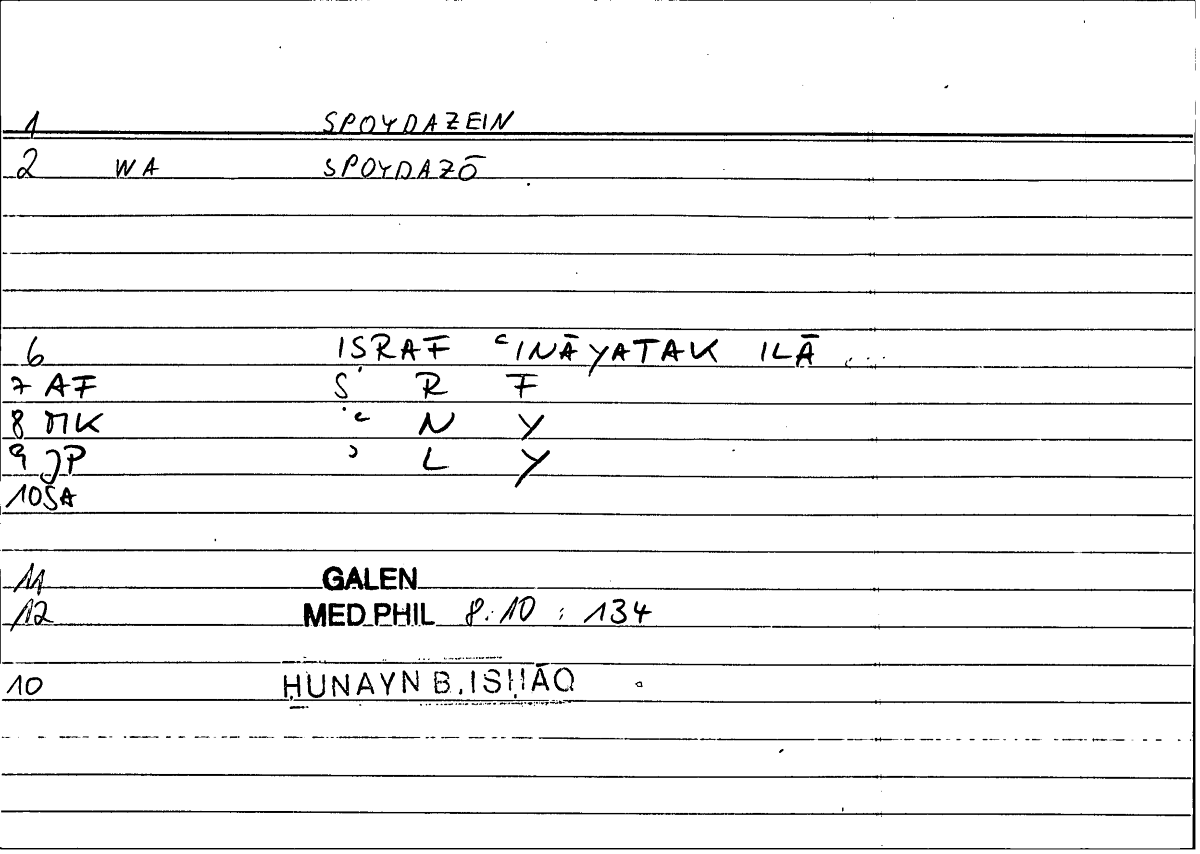 1 SPOYDAZEIN
2 WA SPOYDAZŌ
6 IṢRAF ʿINĀYATAK ILĀ ...
7 AF Ṣ R F
8 MK ʿ N Y
9 JP ʾ L Y
10 SA
11 GALEN
12 MED PHIL 8.10 : 134
10 ḤUNAYN B. ISḤĀQ